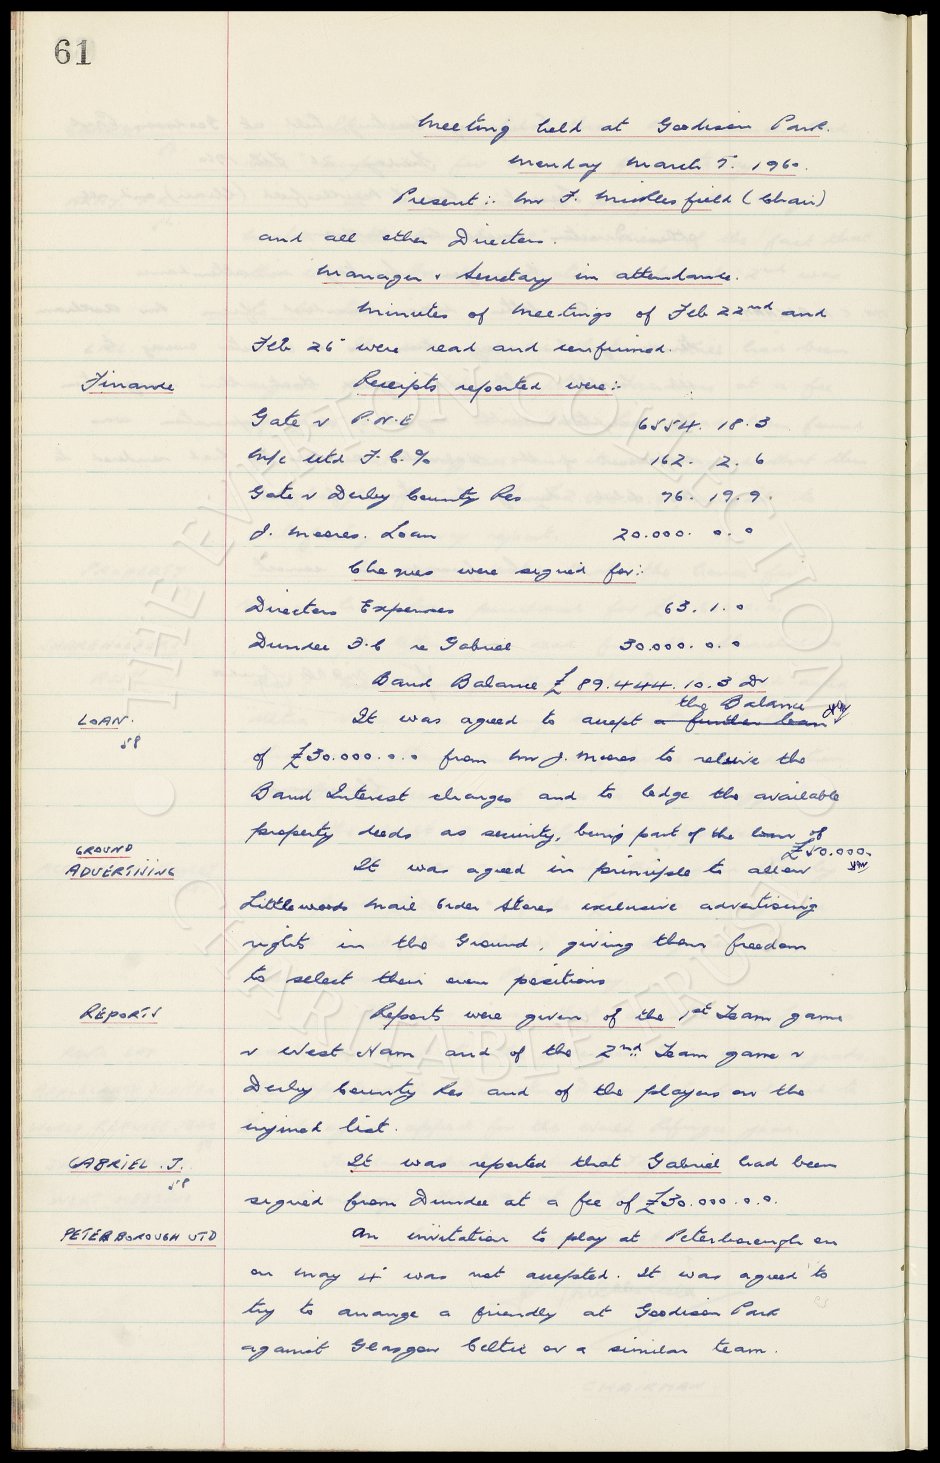 61
Meeting held at Goodison Park.
Monday March 7th 1960.
Present :- Mr F. Micklesfield (Chair)
and all other Directors.
Manager & Secretary in attendance.
Minutes of Meetings of Feb 22nd and
Feb 26 were read and confirmed.
Finance Receipts reported were :-
Gate v P.N.E 6554. 18. 3
M/c Utd F.C. % 162. 2. 6
Gate v Derby County Res 76. 19. 9.
J. Moores. Loan 20.000. 0. 0
Cheques were signed for :-
Directors Expenses 63. 1. 0
Dundee F.C re Gabriel 30.000. 0. 0
Bank Balance £89.444. 10. 3 Dr
the Balance
LOAN. It was agreed to accept a further loan
58
of £30.000. 0. 0 from Mr J. Moores to relieve the
Bank Interest charges and to lodge the available
property deeds as security, being part of the loan of
£50.000.
GROUND
ADVERTISING It was agreed in principle to allow
Littlewoods Mail Order Stores exclusive advertising
rights in the Ground, giving them freedom
to select their own positions
REPORTS Reports were given of the 1st Team game
v West Ham and of the 2nd Team game v
Derby County Res and of the players on the
injured list.
GABRIEL. J. It was reported that Gabriel had been
58
signed from Dundee at a fee of £30.000. 0. 0.
PETERBOROUGH UTD An invitation to play at Peterborough on
on May 4 was not accepted. It was agreed to
try to arrange a friendly at Goodison Park
against Glasgow Celtic or a similar team.
THE EVERTON COLLECTION
CHARITABLE TRUST